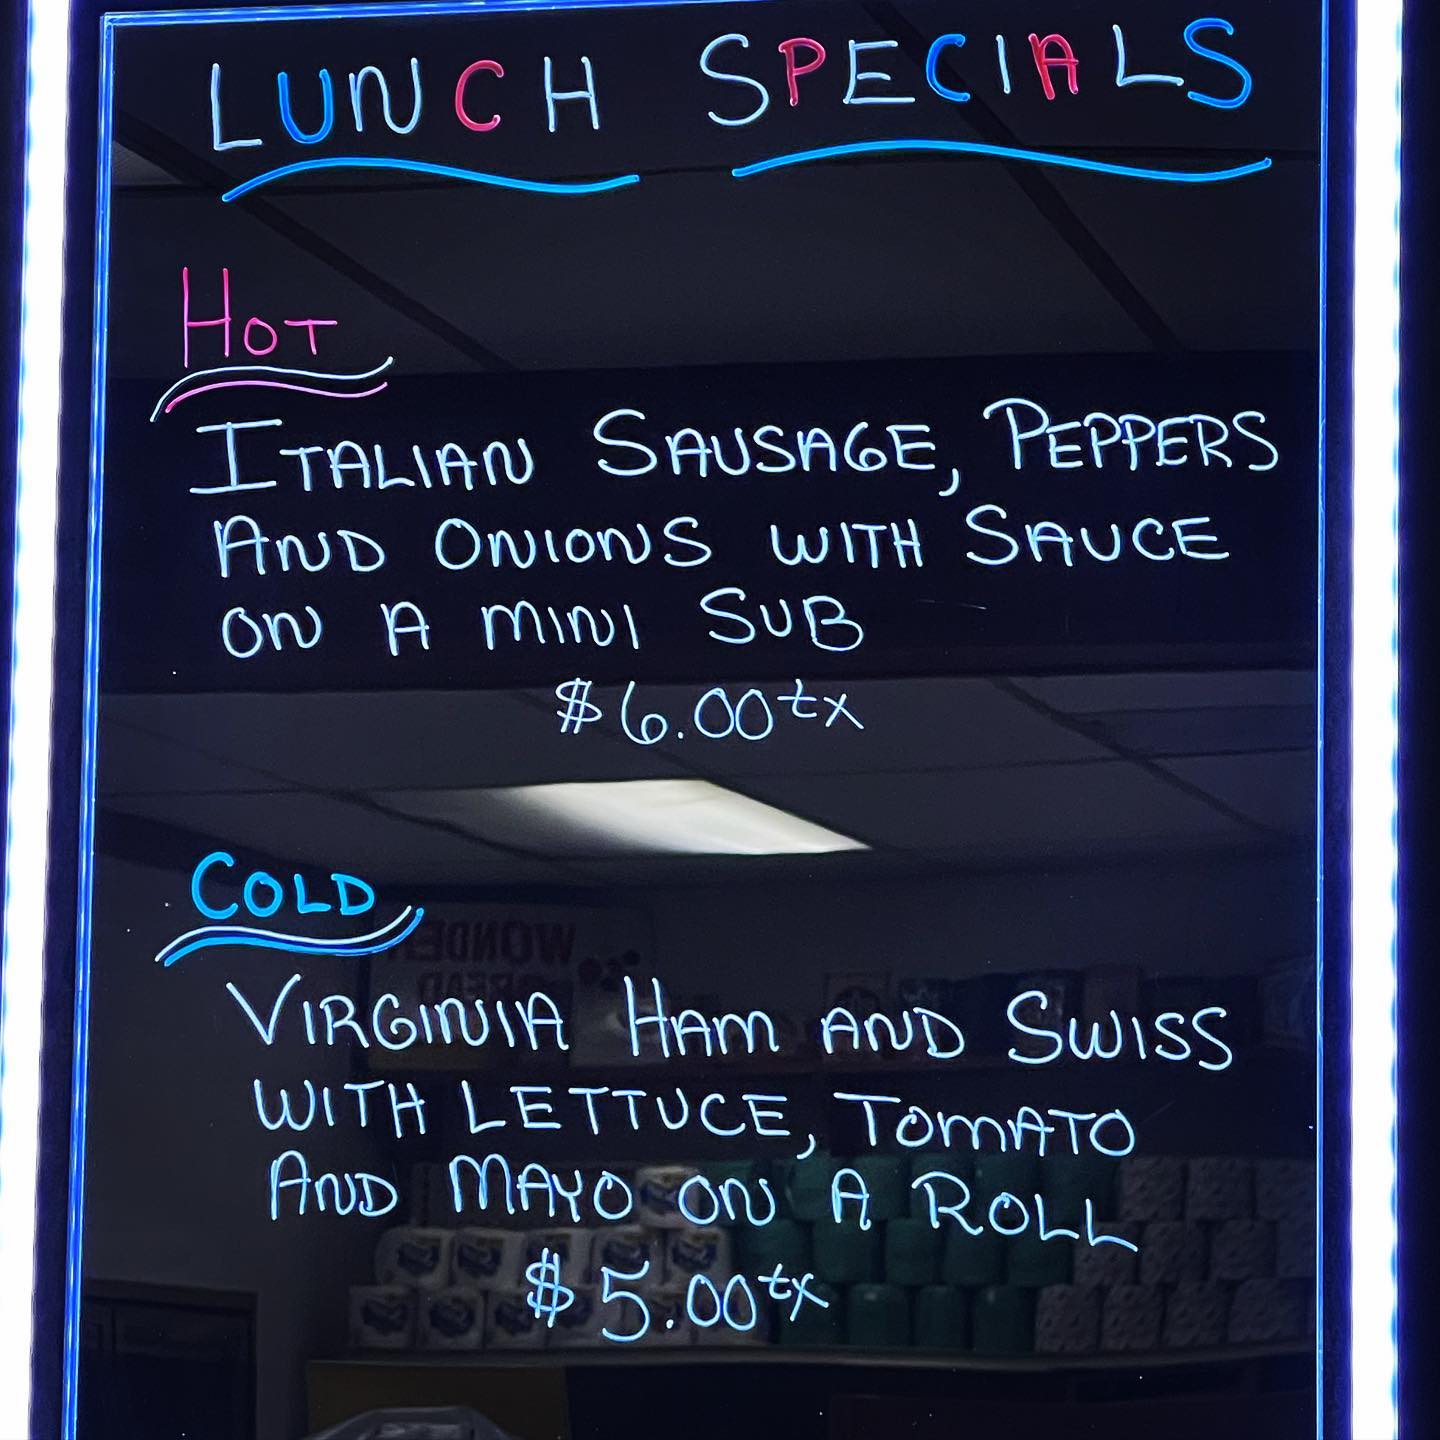 LUNCH SPECIALS
HOT
ITALIAN SAUSAGE, PEPPERS
AND ONIONS WITH SAUCE
ON A MINI SUB
$6.00tx
COLD
WONDER
BREAD
VIRGINIA HAM AND SWISS
WITH LETTUCE, TOMATO
AND MAYO ON A ROLL
$5.00tx